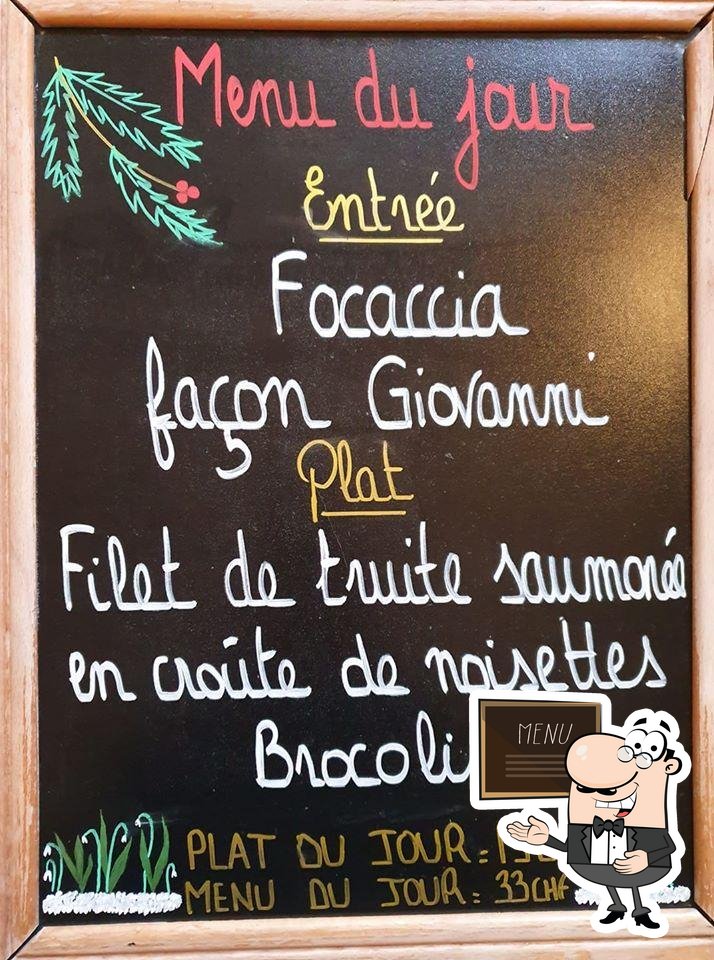 Menu du jour
Entrée
Focaccia
façon Giovanni
Plat
Filet de truite saumonée
en croûte de noisettes
Brocoli
MENU
PLAT DU JOUR =
MENU DU JOUR = 33CHF